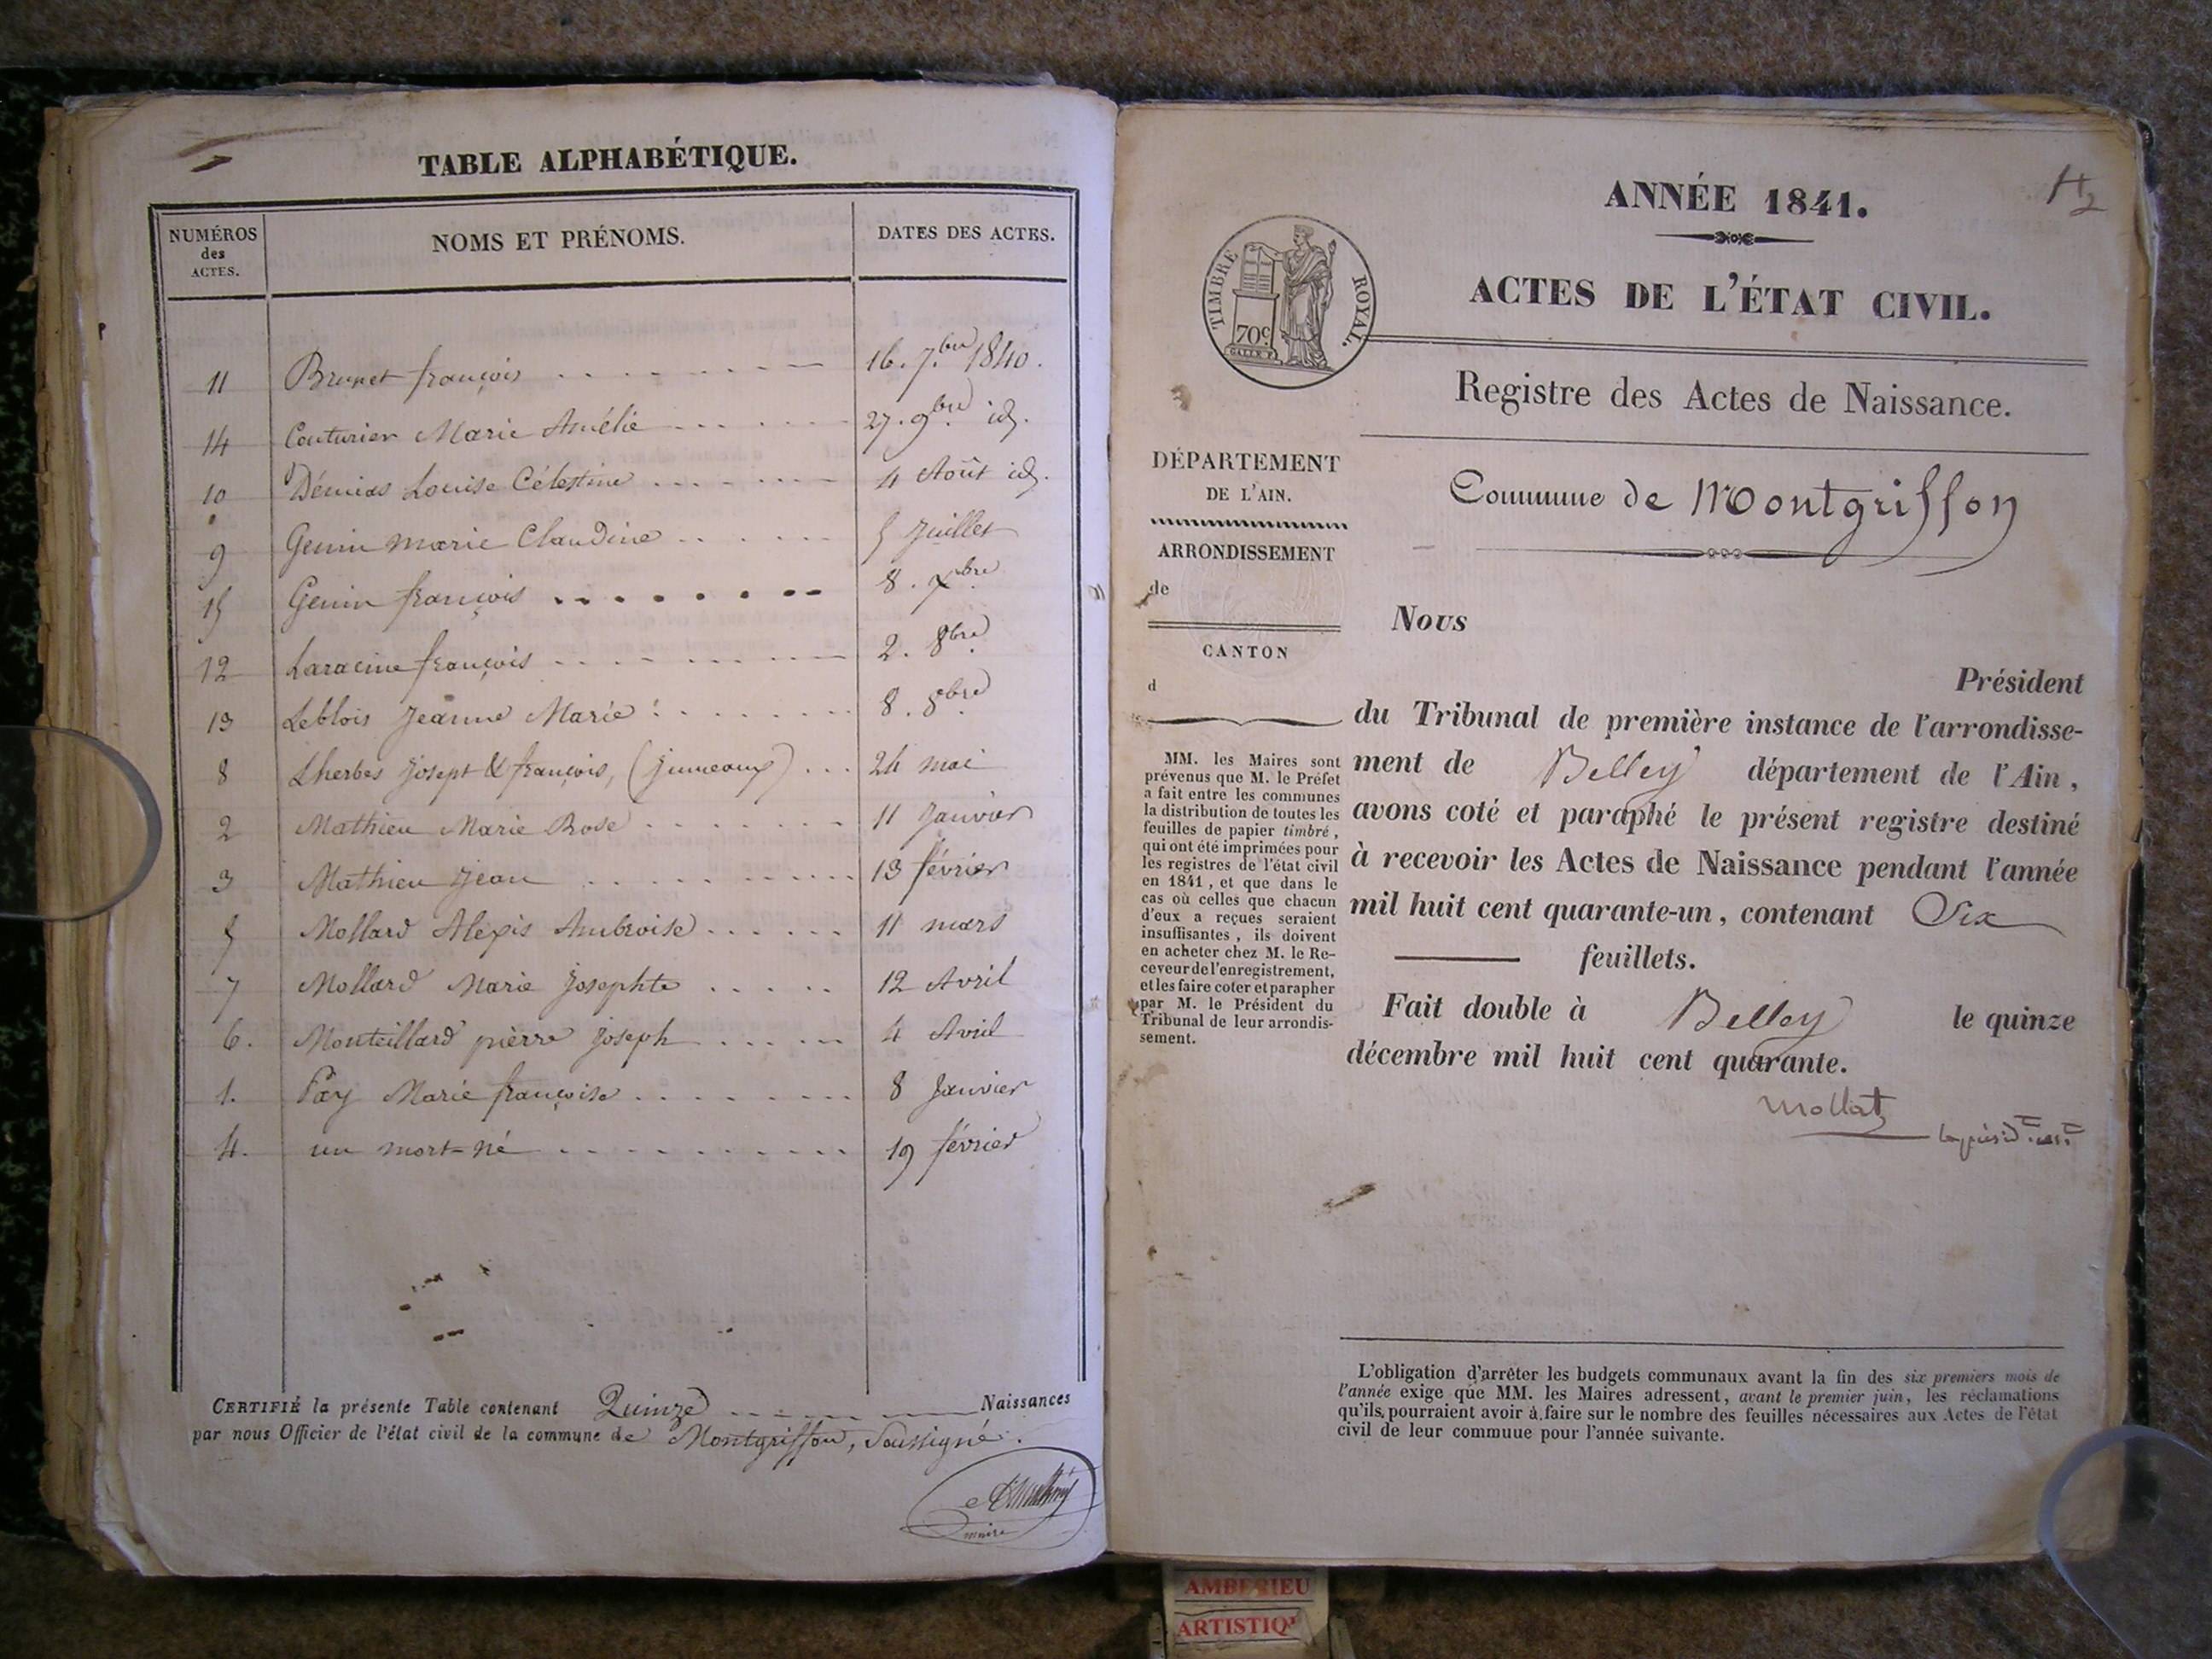 TABLE ALPHABÉTIQUE.
NUMÉROS des ACTES. NOMS ET PRÉNOMS. DATES DES ACTES.
11 Brunet françois 16. 7.bre 1840.
14 Couturier Marie Amélie 27. 9.bre id.
10 Démias Louise Célestine 4 Août id.
9 Genin marie Claudine 5 Juillet
15 Genin françois 8. xbre
12 Laracine françois 2. 8bre
13 Leblois Jeanne Marie 8. 8bre
8 Lherbes Josept & françois, (jumeaux) 24 mai
2 Mathieu Marie Rose 11 Janvier
3 Mathieu Jean 13 février
5 Mollard Aléxis Ambroise 11 mars
7 Mollard Marie Josephte 12 Avril
6. Monteillard pierre joseph 4 Avril
1. Pay Marie françoise 8 Janvier
4. un mort-né 19 février
CERTIFIÉ la présente Table contenant Quinze Naissances
par nous Officier de l'état civil de la commune de Montgriffon, Soussigné.
maire
ANNÉE 1841.
ACTES DE L'ÉTAT CIVIL.
TIMBRE ROYAL.
70c
Registre des Actes de Naissance.
Commune de Montgriffon
DÉPARTEMENT
DE L'AIN.
ARRONDISSEMENT
de
CANTON
d
MM. les Maires sont
prévenus que M. le Préfet
a fait entre les communes
la distribution de toutes les
feuilles de papier timbré,
qui ont été imprimées pour
les registres de l'état civil
en 1841, et que dans le
cas où celles que chacun
d'eux a reçues seraient
insuffisantes, ils doivent
en acheter chez M. le Re-
ceveur de l'enregistrement,
et les faire coter et parapher
par M. le Président du
Tribunal de leur arrondis-
sement.
Nous
Président
du Tribunal de première instance de l'arrondisse-
ment de Belley département de l'Ain,
avons coté et paraphé le présent registre destiné
à recevoir les Actes de Naissance pendant l'année
mil huit cent quarante-un, contenant Six
feuillets.
Fait double à Belley le quinze
décembre mil huit cent quarante.
Mollat
L'obligation d'arrêter les budgets communaux avant la fin des six premiers mois de
l'année exige que MM. les Maires adressent, avant le premier juin, les réclamations
qu'ils pourraient avoir à faire sur le nombre des feuilles nécessaires aux Actes de l'état
civil de leur commuue pour l'année suivante.
AMBERIEU
ARTISTIQ